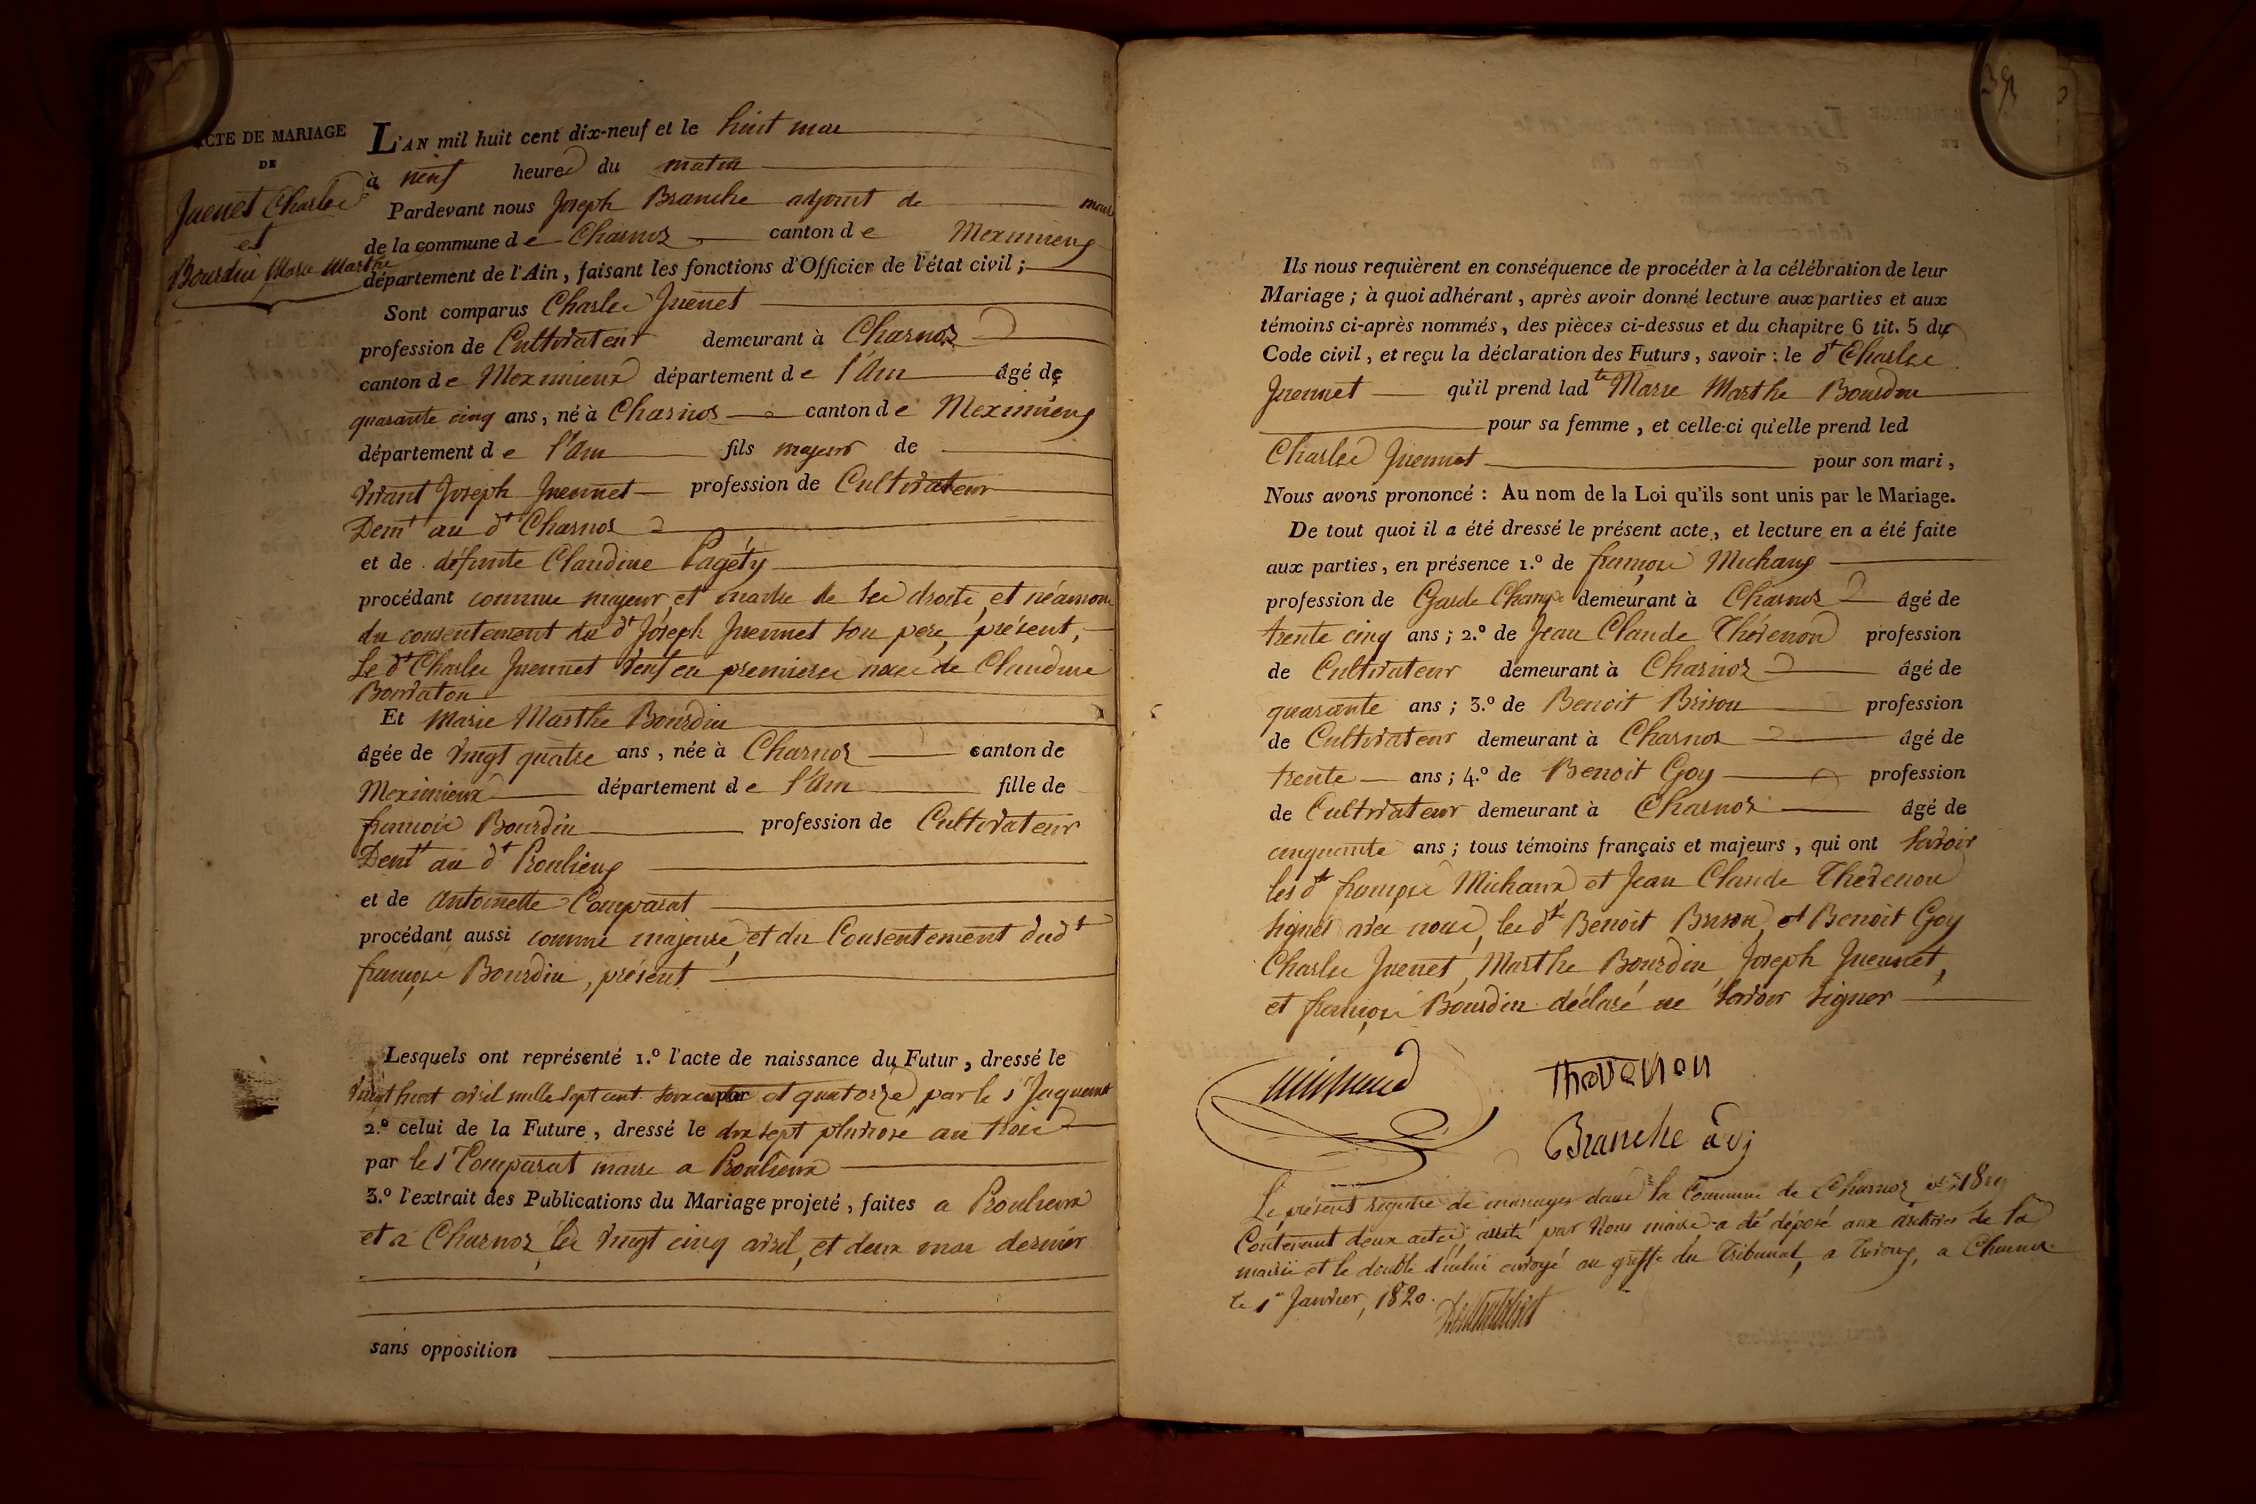 ACTE DE MARIAGE
DE
Juenet Charles
et
Bourdin Marie Marthe
L'AN mil huit cent dix-neuf et le huit mai
à neuf heures du matin
Pardevant nous Joseph Branche adjoint de maire
de la commune de Charnoz canton de Meximieux
département de l'Ain, faisant les fonctions d'Officier de l'état civil;
Sont comparus Charles Juenet
profession de Cultivateur demeurant à Charnoz
canton de Meximieux département de l'Ain âgé de
quarante cinq ans, né à Charnoz canton de Meximieux
département de l'Ain fils majeur de
vivant Joseph Juennet profession de Cultivateur
Demt au dt Charnoz
et de défunte Claudine Pagéty
procédant comme majeur et maitre de ses droits, et néamoin
du consentement du dt Joseph Juennet son père, présent,
Le dt Charles Juennet veuf en premieres noces de Claudine
Bourdin aton
Et Marie Marthe Bourdin
âgée de vingt quatre ans, née à Charnoz canton de
Meximieux département de l'Ain fille de
françois Bourdin profession de Cultivateur
Demt au dt Roulieux
et de Antoinette Comparat
procédant aussi comme majeure, et du Consentement dudt
françois Bourdin, présent
Lesquels ont représenté 1.º l'acte de naissance du Futur, dressé le
vingt huit avril mille sept cent soixante et quatorze, par le sr Jaquemet
2.º celui de la Future, dressé le dix sept pluviose an trois
par le sr Comparat maire a Roulieux
3.º l'extrait des Publications du Mariage projeté, faites a Roulieux
et a Charnoz, les vingt cinq avril, et deux mai dernier
sans opposition
Ils nous requièrent en conséquence de procéder à la célébration de leur
Mariage; à quoi adhérant, après avoir donné lecture aux parties et aux
témoins ci-après nommés, des pièces ci-dessus et du chapitre 6 tit. 5 du
Code civil, et reçu la déclaration des Futurs, savoir: le dt Charles
Juennet qu'il prend ladte Marie Marthe Bourdin
pour sa femme, et celle-ci qu'elle prend led
Charles Juennet pour son mari,
Nous avons prononcé: Au nom de la Loi qu'ils sont unis par le Mariage.
De tout quoi il a été dressé le présent acte, et lecture en a été faite
aux parties, en présence 1.º de françois Michaux
profession de Garde Champe demeurant à Charnoz âgé de
trente cinq ans; 2.º de Jean Claude Thévenon profession
de Cultivateur demeurant à Charnoz âgé de
quarante ans; 3.º de Benoit Brison profession
de Cultivateur demeurant à Charnoz âgé de
trente ans; 4.º de Benoit Goy profession
de Cultivateur demeurant à Charnoz âgé de
cinquante ans; tous témoins français et majeurs, qui ont savoir
les dts françois Michaux et Jean Claude Thevenon
signés avec nous, les dts Benoit Brison, et Benoit Goy
Charles Juenet, Marthe Bourdin, Joseph Juennet,
et françois Bourdin déclaré ne savoir signer
michaud
Thevenon
Branche adj
Le présent registre de mariages dans la Commune de Charnoz 1819
Contenant deux actes, arrêté par Nous maire a été déposé aux archives de la
mairie et le double d'icelui envoyé au greffe du Tribunal, a Trevoux, a Charnoz
le 1er Janvier, 1820.